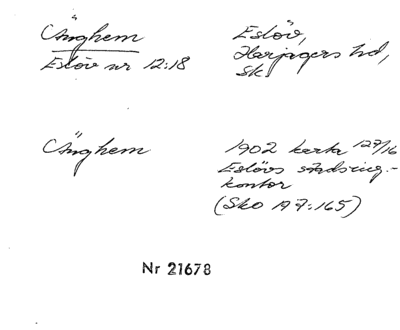 Änghem
Eslöv nr 12:18
Eslöv,
Harjagers hd,
Sk.
Änghem
1902 karta 127/16
Eslövs stadsing.-
kontor
(Sko 197:165)
Nr 21678